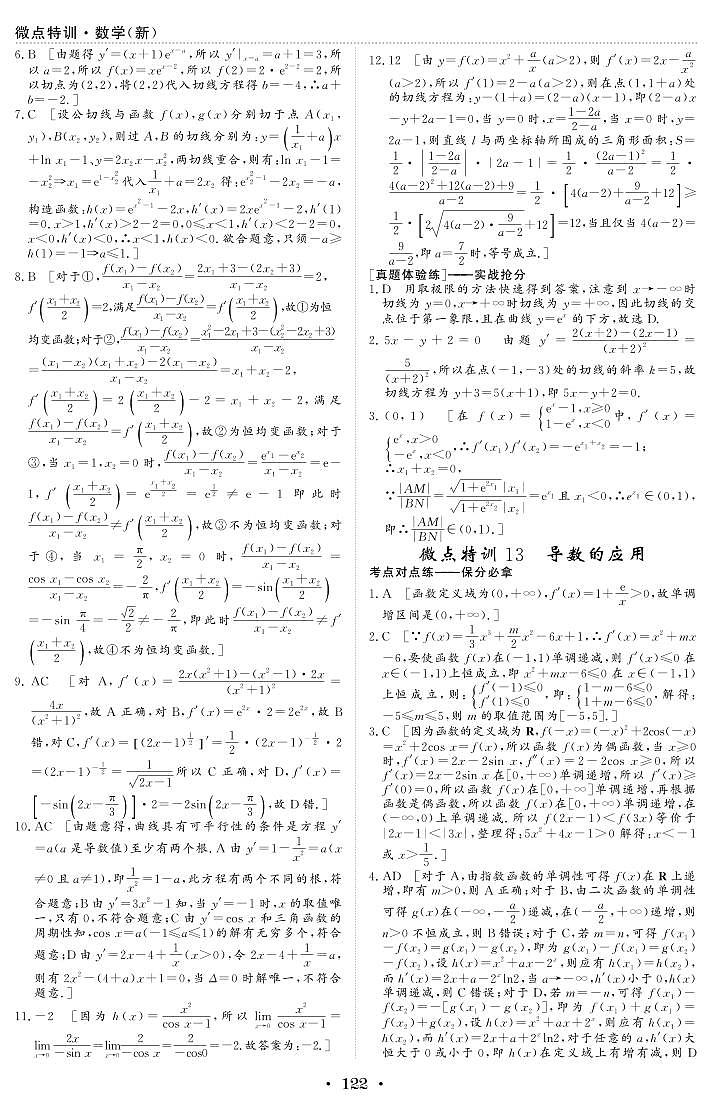 微点特训·数学(新)
6.B [由题得 y′=(x+1)eˣ⁻ᵃ,所以 y′|ₓ₌ₐ=a+1=3,所
以 a=2,所以 f(x)=xeˣ⁻²,所以 f(2)=2·e²⁻²=2,所
以切点为(2,2),将(2,2)代入切线方程得 b=-4,∴a+
b=-2.]
7.C [设公切线与函数 f(x),g(x)分别切于点 A(x₁,
y₁),B(x₂,y₂),则过 A,B 的切线分别为:y=(1/x₁+a)x
+ln x₁-1、y=2x₂x-x₂²,两切线重合,则有:ln x₁-1=
-x₂²⇒x₁=e^(1-x₂²)代入1/x₁+a=2x₂ 得:e^(x₂²-1)-2x₂=-a,
构造函数:h(x)=e^(x²-1)-2x,h′(x)=2xe^(x²-1)-2,h′(1)
=0.x>1,h′(x)>2-2=0,0≤x<1,h′(x)<2-2=0,
x<0,h′(x)<0,∴x<1,h(x)<0.欲合题意,只须-a≥
h(1)=-1⇒a≤1.]
8.B [对于①,(f(x₁)-f(x₂))/(x₁-x₂)=(2x₁+3-(2x₂+3))/(x₁-x₂)=2,
f′((x₁+x₂)/2)=2,满足(f(x₁)-f(x₂))/(x₁-x₂)=f′((x₁+x₂)/2),故①为恒
均变函数;对于②,(f(x₁)-f(x₂))/(x₁-x₂)=(x₁²-2x₁+3-(x₂²-2x₂+3))/(x₁-x₂)
=((x₁-x₂)(x₁+x₂)-2(x₁-x₂))/(x₁-x₂)=x₁+x₂-2,
f′((x₁+x₂)/2)=2((x₁+x₂)/2)-2=x₁+x₂-2,满足
(f(x₁)-f(x₂))/(x₁-x₂)=f′((x₁+x₂)/2),故②为恒均变函数;对于
③,当 x₁=1,x₂=0 时,(f(x₁)-f(x₂))/(x₁-x₂)=(e^x₁-e^x₂)/(x₁-x₂)=e-
1,f′((x₁+x₂)/2)=e^((x₁+x₂)/2)=e^(1/2)≠e-1 即此时
(f(x₁)-f(x₂))/(x₁-x₂)≠f′((x₁+x₂)/2),故③不为恒均变函数;对
于④,当 x₁=π/2,x₂=0 时,(f(x₁)-f(x₂))/(x₁-x₂)=
(cos x₁-cos x₂)/(x₁-x₂)=-2/π,f′((x₁+x₂)/2)=-sin((x₁+x₂)/2)
=-sin π/4=-√2/2≠-2/π,即此时(f(x₁)-f(x₂))/(x₁-x₂)≠f′
((x₁+x₂)/2),故④不为恒均变函数.]
9.AC [对 A,f′(x)=(2x(x²+1)-(x²-1)·2x)/(x²+1)²=
4x/(x²+1)²,故 A 正确,对 B,f′(x)=e²ˣ·2=2e²ˣ,故 B
错,对 C,f′(x)=[(2x-1)^(1/2)]′=1/2·(2x-1)^(-1/2)·2
=(2x-1)^(-1/2)=1/√(2x-1)所以 C 正确,对 D,f′(x)=
[-sin(2x-π/3)]·2=-2sin(2x-π/3),故 D 错.]
10.AC [由题意得,曲线具有可平行性的条件是方程 y′
=a(a 是导数值)至少有两个根.A 由 y′=1-1/x²=a(x
≠0 且 a≠1),即1/x²=1-a,此方程有两个不同的根,符
合题意;B 由 y′=3x²-1 知,当 y′=-1 时,x 的取值唯
一,只有 0,不符合题意;C 由 y′=cos x 和三角函数的
周期性知,cos x=a(-1≤a≤1)的解有无穷多个,符合
题意;D 由 y′=2x-4+1/x(x>0),令 2x-4+1/x=a,
则有 2x²-(4+a)x+1=0,当 Δ=0 时解唯一,不符合
题意.]
11.-2 [因为 h(x)=x²/(cos x-1),所以 lim(x→0) x²/(cos x-1)=
lim(x→0) 2x/(-sin x)=lim(x→0) 2/(-cos x)=2/(-cos0)=-2.故答案为:-2.]
12.12 [由 y=f(x)=x²+a/x(a>2),则 f′(x)=2x-a/x²
(a>2),所以 f′(1)=2-a(a>2),则在点(1,1+a)处
的切线方程为:y-(1+a)=(2-a)(x-1),即(2-a)x
-y+2a-1=0,当 y=0 时,x=(1-2a)/(2-a),当 x=0 时,y=
2a-1,则直线 l 与两坐标轴所围成的三角形面积:S=
1/2·|(1-2a)/(2-a)|·|2a-1|=1/2·(2a-1)²/(a-2)=1/2·
(4(a-2)²+12(a-2)+9)/(a-2)=1/2·[4(a-2)+9/(a-2)+12]≥
1/2·[2√(4(a-2)·9/(a-2))+12]=12,当且仅当 4(a-2)=
9/(a-2),即 a=7/2时,等号成立.]
[真题体验练]——实战抢分
1.D 用取极限的方法快速得到答案,注意到 x→-∞时
切线为 y=0,x→+∞时切线为 y=+∞,因此切线的交
点位于第一象限,且在曲线 y=eˣ 的下方,故选 D.
2.5x-y+2=0 由题 y′=(2(x+2)-(2x-1))/(x+2)²=
5/(x+2)²,所以在点(-1,-3)处的切线的斜率 k=5,故
切线方程为 y+3=5(x+1),即 5x-y+2=0.
3.(0,1) [在 f(x)={eˣ-1,x≥0 1-eˣ,x<0 中,f′(x)=
{eˣ,x>0 -eˣ,x<0,∴f′(x₁)f′(x₂)=-e^(x₁+x₂)=-1;
∴x₁+x₂=0,
∵|AM|/|BN|=(√(1+e^(2x₁))|x₁|)/(√(1+e^(2x₂))|x₂|)=e^x₁ 且 x₁<0,∴e^x₁∈(0,1),
即∴|AM|/|BN|∈(0,1).]
微点特训 13 导数的应用
考点对点练——保分必拿
1.A [函数定义域为(0,+∞),f′(x)=1+e/x>0,故单调
增区间是(0,+∞).]
2.C [∵f(x)=1/3x³+m/2x²-6x+1,∴f′(x)=x²+mx
-6,要使函数 f(x)在(-1,1)单调递减,则 f′(x)≤0 在
x∈(-1,1)上恒成立,即 x²+mx-6≤0 在 x∈(-1,1)
上恒成立,则:{f′(-1)≤0 f′(1)≤0,即:{1-m-6≤0 1+m-6≤0,解得:
-5≤m≤5,则 m 的取值范围为[-5,5].]
3.C [因为函数的定义域为 R,f(-x)=(-x)²+2cos(-x)
=x²+2cos x=f(x),所以函数 f(x)为偶函数,当 x≥0
时,f′(x)=2x-2sin x,f″(x)=2-2cos x≥0,所以
f′(x)=2x-2sin x 在[0,+∞)单调递增,所以 f′(x)≥
f′(0)=0,所以函数 f(x)在[0,+∞]单调递增,再根据
函数是偶函数,所以函数 f(x)在[0,+∞)单调递增,在
(-∞,0)上单调递减.所以 f(2x-1)<f(3x)等价于
|2x-1|<|3x|,整理得:5x²+4x-1>0 解得:x<-1
或 x>1/5.]
4.AD [对于 A,由指数函数的单调性可得 f(x)在 R 上递
增,即有 m>0,则 A 正确;对于 B,由二次函数的单调性
可得 g(x)在(-∞,-a/2)递减,在(-a/2,+∞)递增,则
n>0 不恒成立,则 B 错误;对于 C,若 m=n,可得 f(x₁)
-f(x₂)=g(x₁)-g(x₂),即为 g(x₁)-f(x₁)=g(x₂)
-f(x₂),设 h(x)=x²+ax-2ˣ,则应有 h(x₁)=h(x₂),
而 h′(x)=2x+a-2ˣln2,当 a→-∞,h′(x)小于 0,h(x)
单调递减,则 C 错误;对于 D,若 m=-n,可得 f(x₁)-
f(x₂)=-[g(x₁)-g(x₂)],即为 f(x₁)+g(x₁)=
f(x₂)+g(x₂),设 h(x)=x²+ax+2ˣ,则应有 h(x₁)=
h(x₂),而 h′(x)=2x+a+2ˣln2,对于任意的 a,h′(x)大
恒大于 0 或小于 0,即 h(x)在定义域上有增有减,则 D
• 122 •